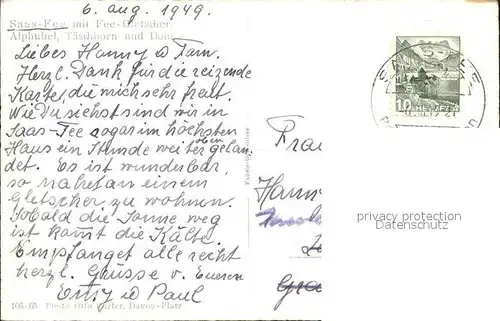 6. Aug. 1949.
Saas-Fee mit Fee-Gletscher
Alphubel, Täschhorn und Dom
Liebes Hanny u Fam.
Herzl. Dank für die reizende
Karte, die mich sehr freut.
Wie Du siehst sind wir in
Saas-Fee sogar im höchsten
Haus ein Stunde weiter oben gelan-
det. Es ist wunderbar,
so nahe an einem
Gletscher zu wohnen.
Sobald die Sonne weg
ist kommt die Kälte.
Empfanget alle recht
herzl. Grüsse v. Eueren
Emy u Paul
Photo Otto Furter, Davos-Platz
10
HELVETIA
Frau
Hann
privacy protection
Datenschutz